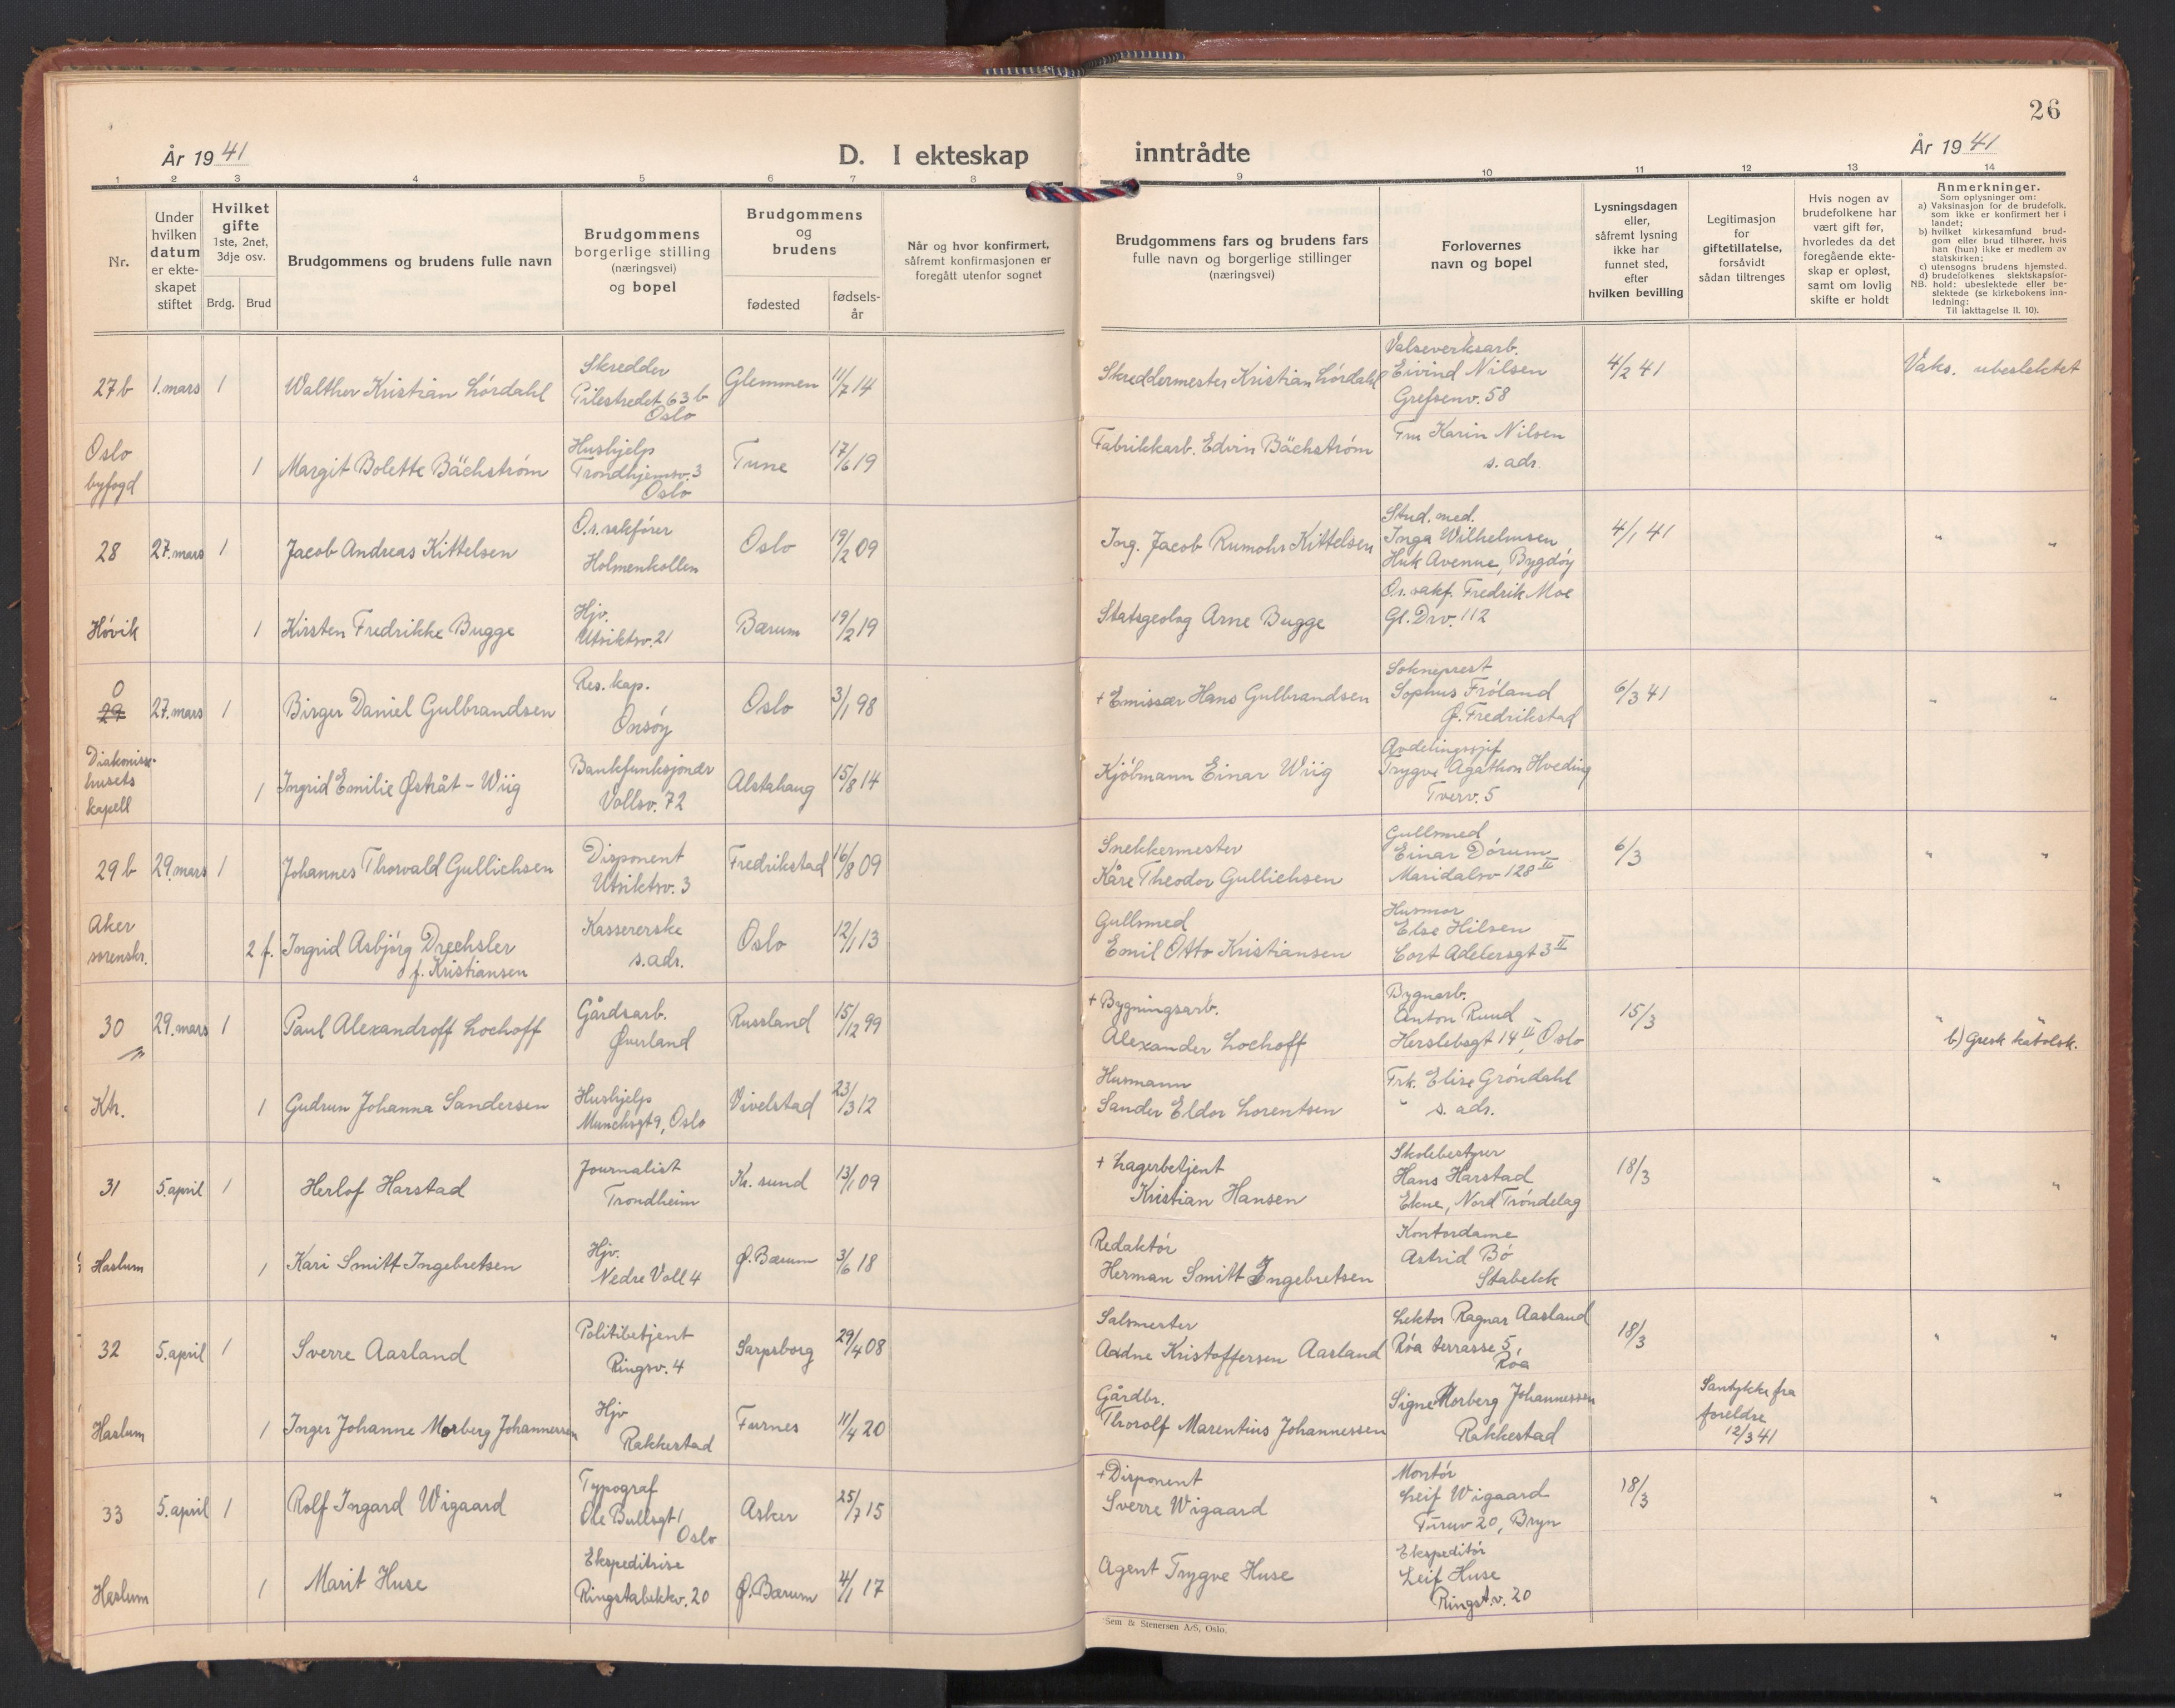 26
År 1941
D. I ekteskap inntrådte
År 1941
1 2 3 4 5 6 7 8 9 10 11 12 13 14
Nr.
Under hvilken datum er ekte-skapet stiftet
Hvilket gifte
1ste, 2net, 3dje osv.
Brdg. Brud
Brudgommens og brudens fulle navn
Brudgommens borgerlige stilling (næringsvei) og bopel
Brudgommens og brudens
fødested
fødsels-år
Når og hvor konfirmert, såfremt konfirmasjonen er foregått utenfor sognet
Brudgommens fars og brudens fars fulle navn og borgerlige stillinger (næringsvei)
Forlovernes navn og bopel
Lysningsdagen eller, såfremt lysning ikke har funnet sted, efter hvilken bevilling
Legitimasjon for giftetillatelse, forsåvidt sådan tiltrenges
Hvis nogen av brudefolkene har vært gift før, hvorledes da det foregående ekte-skap er opløst, samt om lovlig skifte er holdt
Anmerkninger.
Som oplysninger om:
a) Vaksinasjon for de brudefolk, som ikke er konfirmert her i landet;
b) hvilket kirkesamfund brud-gom eller brud tilhører, hvis han (hun) ikke er medlem av statskirken;
c) utensogns brudens hjemsted.
d) brudefolkenes slektskapsfor-hold: ubeslektede eller be-slektede (se kirkebokens inn-ledning:
NB.
Til iakttagelse II. 10).
27 b 1. mars 1 Walther Kristian Lórdahl
Skredder
Pilestredet 63 b
Oslo
Glemmen 11/7 14
Skreddermester Kristian Lórdahl
Valseverksarb.
Eivind Nilsen
Grefsenv. 58
4/2 41
Vaks. ubeslektet
Oslo
byfogd
1 Margit Bolette Bächström
Hushjelp
Trondhjemsv. 3
Oslo
Tune 17/6 19
Fabrikkarb. Edvin Bächström
Fru Karin Nilsen
s. adr.
28 27. mars 1 Jacob Andreas Kittelsen
O.r.sakfører
Holmenkollen
Oslo 19/2 09
Ing. Jacob Rumohr Kittelsen
Stud. med.
Inga Wilhelmsen
Huk Avenue, Bygdóy
4/1 41
" "
Hóvik
1 Kirsten Fredrikke Bugge
Hjv.
Utsiktsv. 21
Bærum 19/2 19
Statsgeolog Arne Bugge
O.r.sakf. Fredrik Moe
Gl. Drv. 112
0
29 27. mars 1 Birger Daniel Gulbrandsen
Res. kap.
Onsóy
Oslo 3/1 98
+ Emissær Hans Gulbrandsen
Sokneprest
Sophus Fróland
Ø. Fredrikstad
6/3 41
" "
Diakonisse-
husets
kapell
1 Ingrid Emilie Østråt - Wiig
Bankfunksjonær
Vollsv. 72
Alstahaug 15/8 14
Kjóbmann Einar Wiig
Avdelingssjef
Trygve Agathon Hveding
Tverv. 5
29 b 29. mars 1 Johannes Thorvald Gullichsen
Disponent
Utsiktsv. 3
Fredrikstad 16/8 09
Snekkermester
Kåre Theodor Gullichsen
Gullsmed
Einar Dórum
Maridalsv 128 II
6/3
" "
Aker
sorenskr.
2 f. Ingrid Asbjórg Drechsler
f. Kristiansen
Kassererske
s. adr.
Oslo 12/1 13
Gullsmed
Emil Otto Kristiansen
Husmor
Else Hilsen
Cort Adelersgt 3 II
30 29. mars 1 Paul Alexandroff Lochoff
Gårdsarb.
Øverland
Russland 15/12 99
+ Bygningsarb.
Alexander Lochoff
Bygnarb.
Anton Ruud
Herslebsgt 14 II, Oslo
15/3
" "
b) Gresk katolsk.
Ktr.
1 Gudrun Johanna Sandersen
Hushjelp
Munchsgt 9, Oslo
Vivelstad 23/3 12
Husmann
Sander Eldor Lorentsen
Frk. Elise Gróndahl
" s. adr.
31 5. april 1 Herlof Harstad
Journalist
Trondheim
Kr. sund 13/1 09
+ Lagerbetjent
Kristian Hansen
Skolebestyrer
Hans Harstad
Ekne, Nord Tróndelag
18/3
" "
Haslum
1 Kari Smitt-Ingebretsen
Hjv.
Nedre Voll 4
Ø. Bærum 3/6 18
Redaktór
Herman Smitt Ingebretsen
Kontordame
Astrid Bó
Stabekk
32 5. april 1 Sverre Aasland
Politibetjent
Ringsv. 4
Sarpsborg 29/4 08
Salsmester
Aadne Kristoffersen Aasland
Lektor Ragnar Aasland
Róa terrasse 5,
Róa
18/3
" "
Haslum
1 Inger Johanne Morberg Johannessen
Hjv
Rakkestad
Furnes 11/4 20
Gårdbr.
Thorolf Marentius Johannessen
Signe Morberg Johannessen
Rakkestad
Samtykke fra
foreldre
12/3 41
33 5. april 1 Rolf Ingard Wigaard
Typograf
Ole Bullsgt 1
Oslo
Asker 25/7 15
+ Disponent
Sverre Wigaard
Montór
Leif Wigaard
Furuv 20, Bryn
18/3
" "
Haslum
1 Marit Huse
Ekspeditrise
Ringstabekkv. 20
Ø. Bærum 4/1 17
Agent Trygve Huse
Ekspeditór
Leif Huse
Ringst.v. 20
Sem & Stenersen A/S, Oslo.